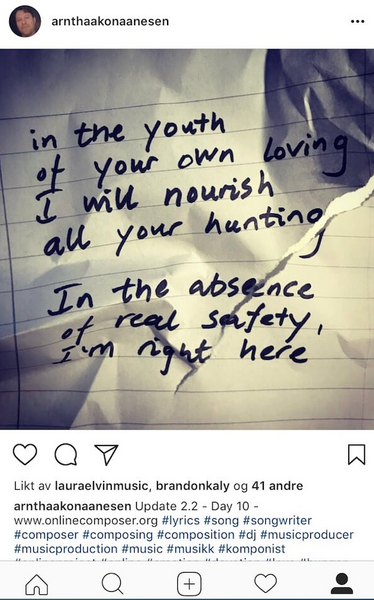 arnthaakonaanesen
in the youth
of your own loving
I will nourish
all your hunting
In the absence
of real safety,
I'm right here
Likt av lauraelvinmusic, brandonkaly og 41 andre
arnthaakonaanesen Update 2.2 - Day 10 -
www.onlinecomposer.org #lyrics #song #songwriter
#composer #composing #composition #dj #musicproducer
#musicproduction #music #musikk #komponist